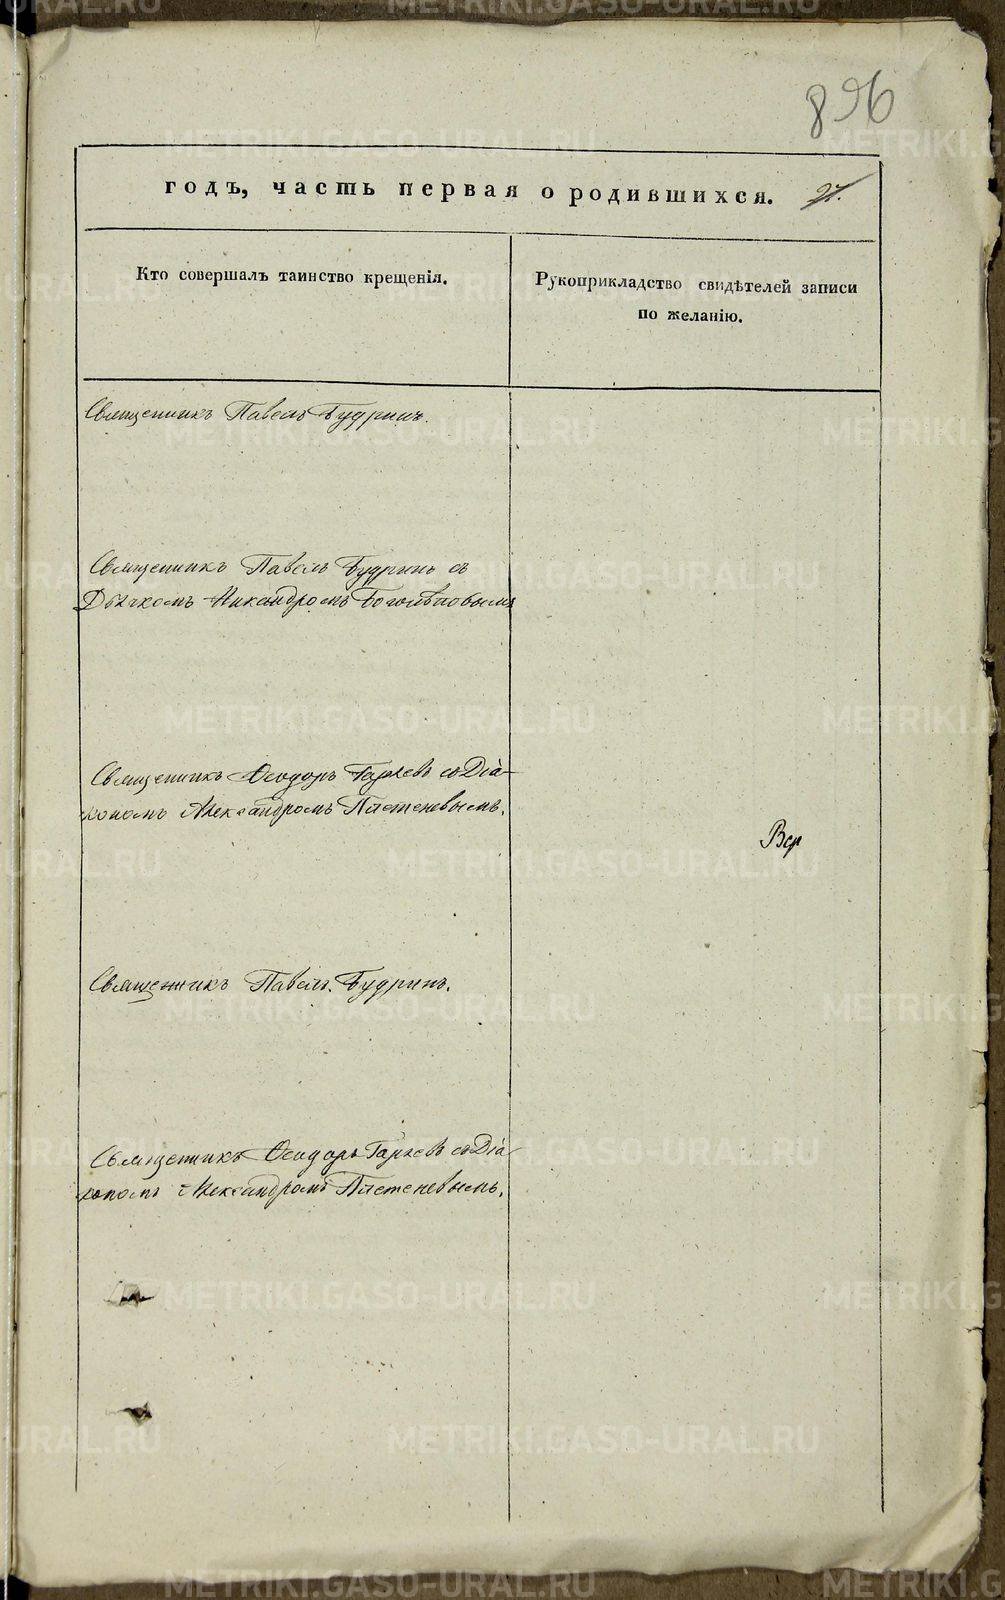 896
годъ, часть первая о родившихся. 27.
Кто совершалъ таинство крещенія.
Рукоприкладство свидѣтелей записи
по желанію.
Священникъ Павелъ Будринъ.
Священникъ Павелъ Будринъ съ
Дьячкомъ Никандромъ Боголѣповымъ
Священникъ Ѳеодоръ Гаряевъ съ Діа-
кономъ Александромъ Плетеневымъ.
Вср
Священникъ Павелъ Будринъ.
Священникъ Ѳеодоръ Гаряевъ съ Діа
кономъ Александромъ Плетеневымъ.
METRIKI.GASO-URAL.RU